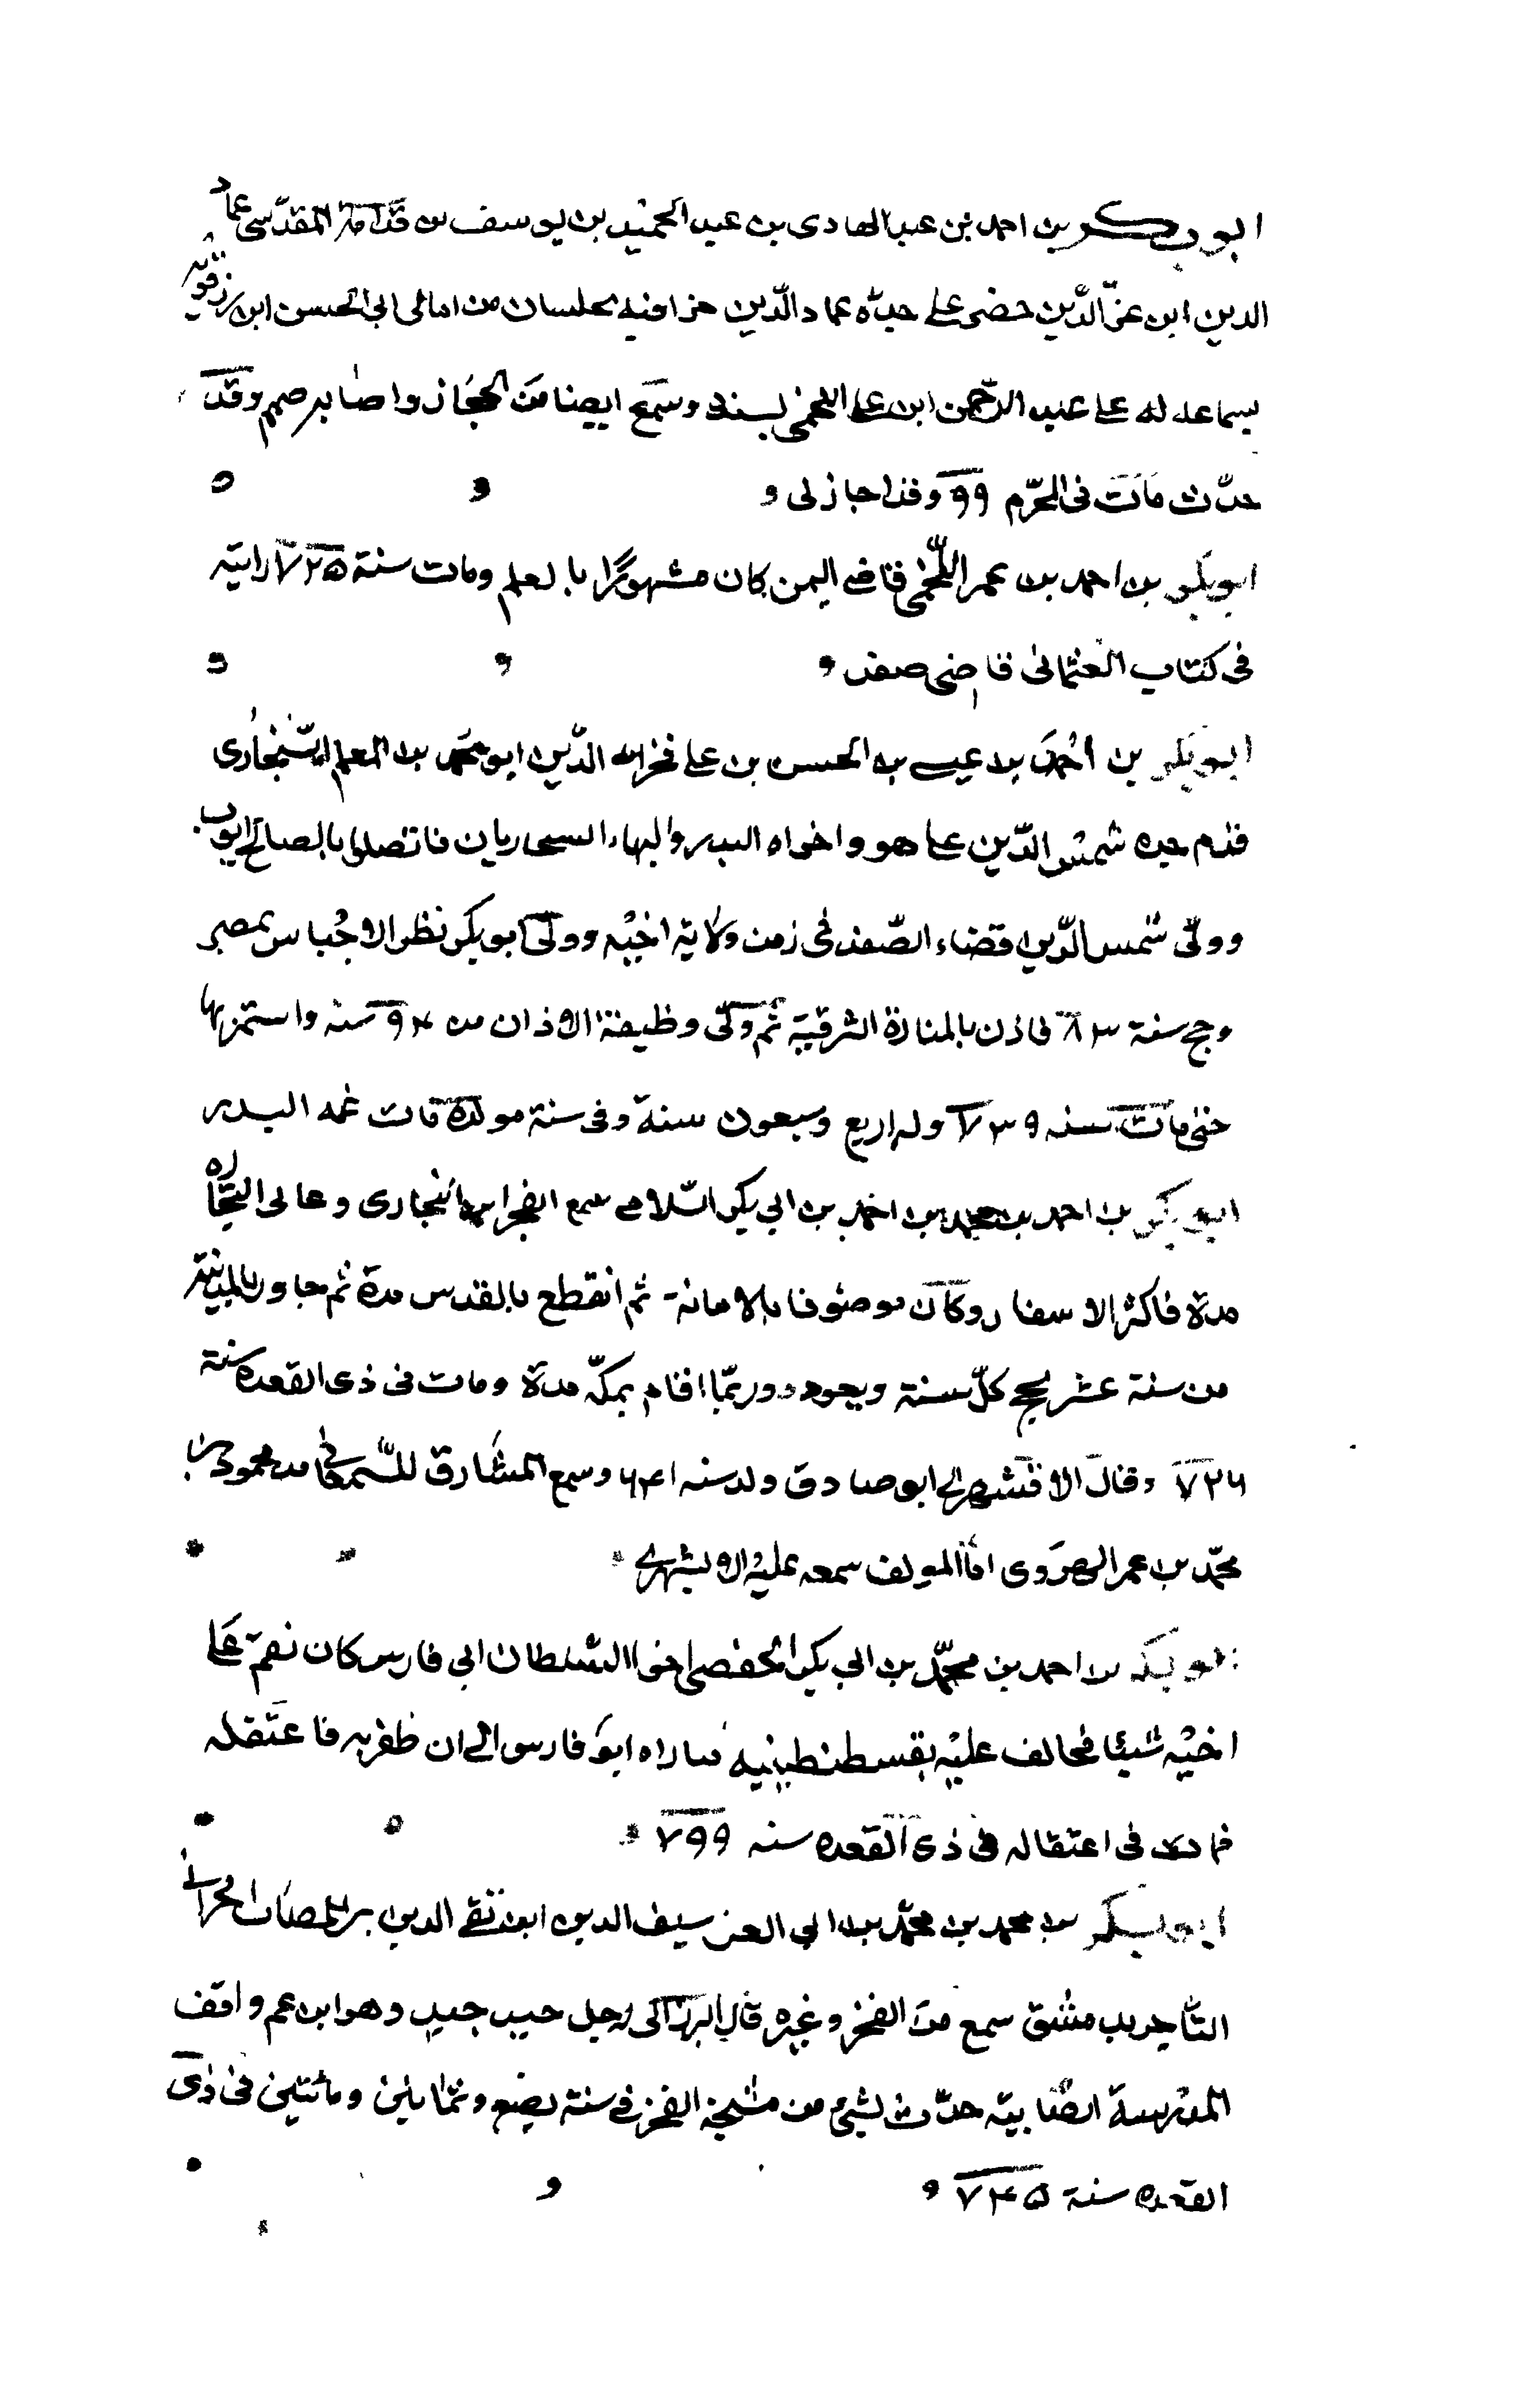 ابو بكر بن احمد بن عبد الهادى بن عبد الحميد بن يوسف بن قدامة المقدسى عماد
الدين ابن عز الدين حضر على جده عماد الدين جزا فيه مجلسان من امالى ابى الحسن ابن رزقويه
بسماعه له على عبد الرحمن ابن على اللخمى بسنده وسمع ايضا من الحجاز واصابه صمم وقد
حدث مات فى المحرم ٩٩ وقد اجاز لى
ابو بكر بن احمد بن عمر اللخمى قاضى اليمن كان مشهورا بالعلم ومات سنة ٧٢٥ رايته
فى كتاب العثمانى قاضى صفد
ابو بكر بن احمد بن عيسى بن الحسن بن على فخر الدين ابو محمد بن المعلم السنجارى
قدم جده شمس الدين على هو واخواه البدر والبهاء السنجاريان فاتصلوا بالصالح ايوب
وولى شمس الدين قضاء الصفد فى زمن ولاية اخيه وولى ابو بكر نظر الاحباس بمصر
وحج سنة ٨٣ فاذن بالمنارة الشرقية ثم ولى وظيفة الاذان من ٩٤ سنه واستمر بها
حتى مات سنه ٧٣٩ وله اربع وسبعون سنة وفى سنة مولده مات عمه البدر
ابو بكر بن احمد بن محمد بن احمد بن ابى بكر السلامى سمع الفخر ابن البخارى وعانى التجاره
مدة فاكثر الاسفار وكان موصوفا بالامانة ثم انقطع بالقدس مدة ثم جاور بالمدينة
من سنة عشر يحج كل سنة ويعود وربما اقام بمكة مدة ومات فى ذى القعده سنة
٧٢٦ وقال الاقشهرى ابو صادق ولد سنه ٦٤١ وسمع المشارق للصغانى من محمود بن
محمد بن عمر الهروى انا المولف سمعه عليه الاقشهرى
ابو بكر بن احمد بن محمد بن ابى بكر الحفصى اخو السلطان ابى فارس كان نقم على
اخيه شيئا فخالف عليه بقسطنطينيه فساراه ابو فارس الى ان ظفر به فاعتقله
فمات فى اعتقاله فى ذى القعده سنه ٧٩٩
ابو بكر بن محمد بن محمد بن ابى العز سيف الدين ابن تقى الدين الحرانى
التاجر بدمشق سمع من الفخر وغيره قال البرزالى رجل جيد وهو ابن عم واقف
المدرسة الصابيه حدث بشى من مشيخة الفخر فى سنة بضع وثمانين ومائتين فى ذى
القعده سنة ٧٤٥